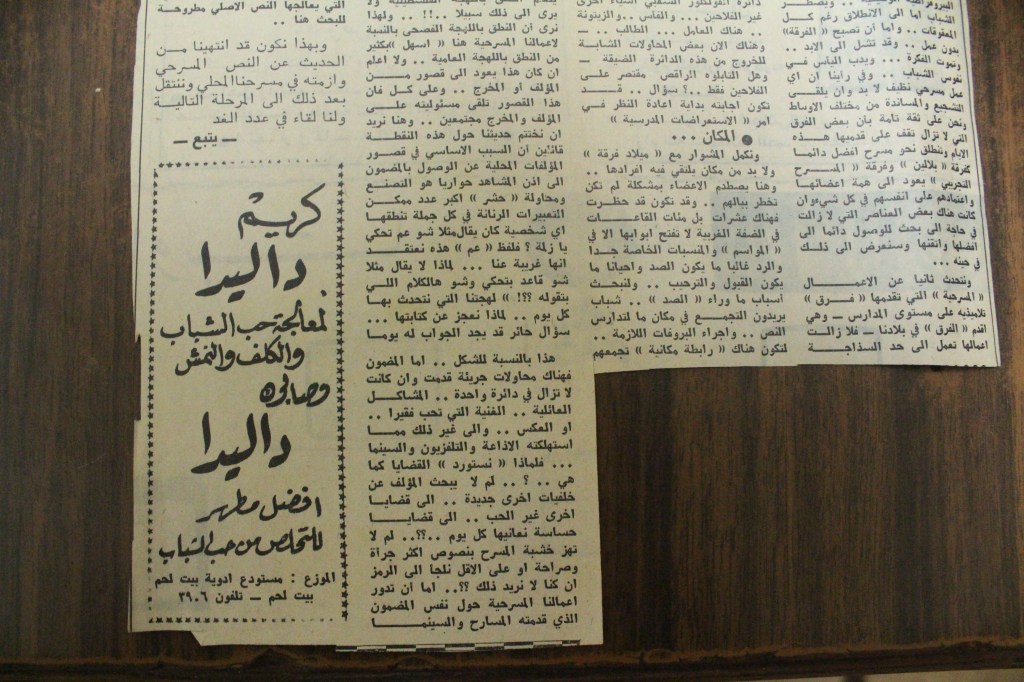 الشباب اما الى الانطلاق رغم كل
المعوقات .. واما أن تصبح « الفرقة»
بدون عمل .. وقد تشل الى الابد ..
وتموت الفكرة .. ويدب اليأس في
نفوس الشباب .. وفي رأينا ان اي
عمل مسرحي نظيف لا بد وان يلقى
التشجيع والمساندة من مختلف الاوساط
ونحن على ثقة تامة بان بعض الفرق
التي لا تزال تقف على قدميها هـذه
الايام وتنطلق نحو مسرح افضل دائما
كفرقة « بلالين » وفرقة « المسرح
التجريبي » يعود الى همة اعضائها
واعتمادهم على انفسهم في كل شيء وان
كانت هناك بعض العناصر التي لا زالت
في حاجة الى بحث للوصول دائما الى
افضلها واتقنها وسنعرض الى ذلك
في حينه ...
ونتحدث ثانيا عن الاعمـــال
« المسرحية » التي تقدمها « فـرق »
تلاميذه على مستوى المدارس ـ وهي
اقدم « الفرق » في بلادنا ـ فلا زالت
اعمالها تعمل الى حد السذاجـة
دائرة الفولكلور الشعبي اشياء اخرى
غير الفلاحين .. والفاس .. والزيتونة
.. هناك العامل ... الطالب ... ـ
وهناك الان بعض المحاولات الشابة
للخروج من هذه الدائرة الضيقة ـ
وهل التابلوه الراقص مقتصر على
الفلاحين فقط ..؟ سؤال .. قــد
تكون اجابته بداية اعادة النظر في
امر « الاستعراضات المدرسية »
● المكان ...
ونكمل المشوار مع « ميلاد فرقة »
ولا بد من مكان يلتقي فيه افرادها ..
وهنا يصطدم الاعضاء بمشكلة لم تكن
تخطر ببالهم .. وقد تكون قد حظرت
فهناك عشرات بل مئات القاعــات
في الضفة الغربية لا تفتح ابوابها الا في
« المواسم » والمنسبات الخاصة جــدا
والرد غالبا ما يكون الصد واحيانا ما
يكون القبول والترحيب .. ولنبحث
أسباب ما وراء « الصد » .. شباب
يريدون التجمع في مكان ما لتدارس
النص .. واجراء البروفات اللازمة ..
لتكون هناك « رابطة مكانية » تجمعهم
يرى الى ذلك سبيلا ..!! .. ولهذا
نرى ان النطق باللهجة الفصحى بالنسبة
لاعمالنا المسرحية هنا « اسهل »بكثير
من النطق باللهجة العامية .. ولا اعلم
ان كان هذا يعود الى قصور مــن
المؤلف او المخرج .. وعلى كل فان
هذا القصور نلقى مسئوليته على
المؤلف والمخرج مجتمعين .. وهنا نريد
ان نختتم حديثنا حول هذه النقطة
قائلين أن السبب الاساسي في قصور
المؤلفات المحلية عن الوصول بالمضمون
الى اذن المشاهد حواريا هو التصنع
ومحاولة « حشر » اكبر عدد ممكـن
التعبيرات الرنانة في كل جملة ننطقها
اي شخصية كان يقال مثلا شو عم تحكي
يا زلمة ؟ فلفظ « عم » هذه نعتقـد
انها غريبة عنا ... لماذا لا يقال مثلا
شو قاعد بتحكي وشو هالكلام اللي
بتقوله ؟؟! » لهجتنا التي نتحدث بها
كل يوم .. لماذا نعجز عن كتابتها ...
سؤال حائر قد يجد الجواب له يوما
هذا بالنسبة للشكل .. اما المضمون
فهناك محاولات جريئة قدمت وان كانت
لا تزال في دائرة واحدة .. المشاكـل
العائلية .. الغنية التي تحب فقيرا ..
او العكس .. والى غير ذلك ممــا
استهلكته الاذاعة والتلفزيون والسينما
... فلماذا « نستورد » القضايا كما
هي .. ؟ .. لم لا يبحث المؤلف عن
خلفيات اخرى جديدة .. الى قضايـا
اخرى غير الحب .. الى قضايــا
حساسة نعانيها كل يوم ..؟؟.. لم لا
نهز خشبة المسرح بنصوص اكثر جرأة
وصراحة او على الاقل نلجا الى الرمز
ان كنا لا نريد ذلك ؟؟.. اما ان تدور
اعمالنا المسرحية حول نفس المضمون
الذي قدمته المسارح والسينمـــا
التي يعالجها النص الاصلي مطروحة
للبحث هنا ..
وبهذا نكون قد انتهينا مــن
الحديث عن النص المسرحي
وازمته في مسرحنا المحلي وننتقل
بعد ذلك الى المرحلة التاليــة
ولنا لقاء في عدد الغد
ـ يتبع ـ
كريم
داليدا
لمعالجة حب الشباب
والكلف والنمش
وصابون
داليدا
افضل مطهر
للتخلص من حب الشباب
الموزع : مستودع ادوية بيت لحم
بيت لحم ـ تلفون ٣٩٠٦